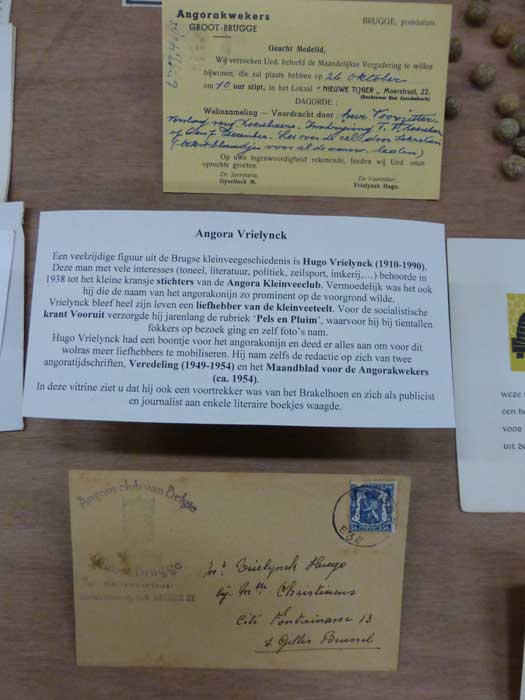 Angorakwekers
GROOT-BRUGGE
BRUGGE, postdatum.
Geacht Medelid,
Wij verzoeken Ued. beleefd de Maandelijkse Vergadering te willen
bijwonen, die zal plaats hebben op 26 oktober
om 10 uur stipt, in het Lokaal " NIEUWE TIJGER „ Moerstraat, 22.
(Rechtover Sint Jacobskerk)
DAGORDE :
Wolinzameling - Voordracht door : heer Voorzitter
Op uwe tegenwoordigheid rekenende, bieden wij Ued. onze
oprechte groeten.
De Secretaris, De Voorzitter,
Gyselinck M. Vrielynck Hugo.
Angora Vrielynck
Een veelzijdige figuur uit de Brugse kleinveegeschiedenis is Hugo Vrielynck (1910-1990).
Deze man met vele interesses (toneel, literatuur, politiek, zeilsport, imkerij,…) behoorde in
1938 tot het kleine kransje stichters van de Angora Kleinveeclub. Vermoedelijk was het ook
hij die de naam van het angorakonijn zo prominent op de voorgrond wilde.
Vrielynck bleef heel zijn leven een liefhebber van de kleinveeteelt. Voor de socialistische
krant Vooruit verzorgde hij jarenlang de rubriek 'Pels en Pluim', waarvoor hij bij tientallen
fokkers op bezoek ging en zelf foto's nam.
Hugo Vrielynck had een boontje voor het angorakonijn en deed er alles aan om voor dit
wolras meer liefhebbers te mobiliseren. Hij nam zelfs de redactie op zich van twee
angoratijdschriften, Veredeling (1949-1954) en het Maandblad voor de Angorakwekers
(ca. 1954).
In deze vitrine ziet u dat hij ook een voortrekker was van het Brakelhoen en zich als publicist
en journalist aan enkele literaire boekjes waagde.
weze
een h
voor
uit de
Angora club van Belgie
Brugge
Mr Vrielynck Hugo
bij Mme Christiaens
Cité Fontainasse 13
S. Gillis Brussel